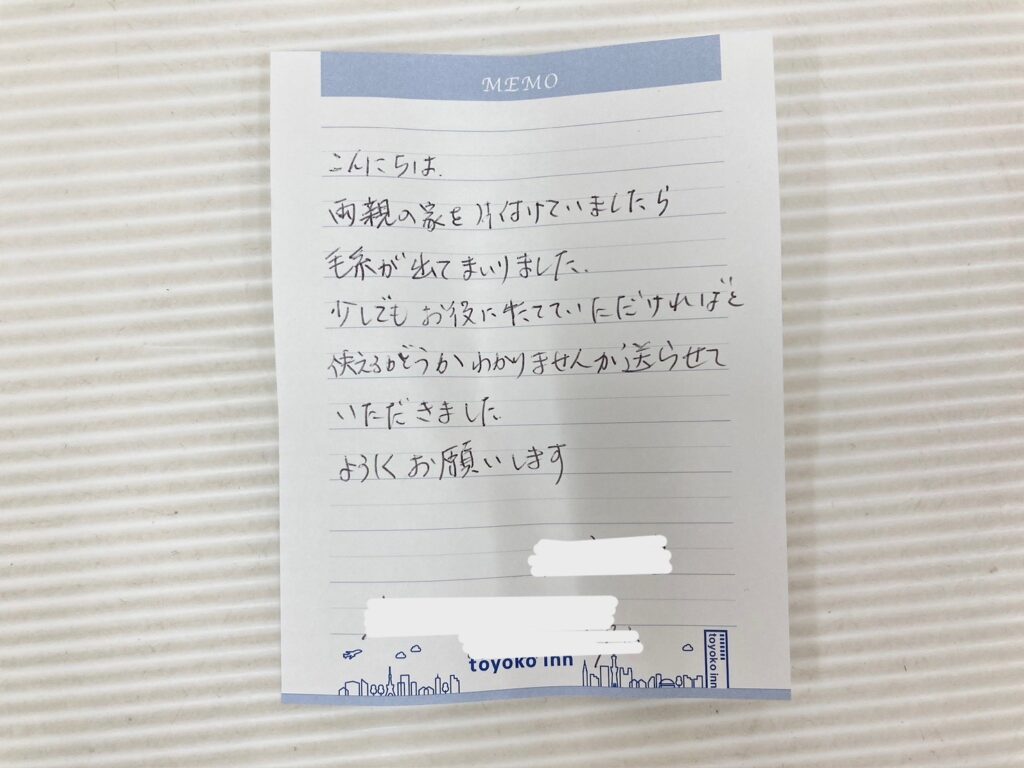 MEMO
こんにちは.
両親の家を片付けていましたら
毛糸が出てまいりました.
少しでもお役に立てていただければと
使えるかどうかわかりませんが送らせて
いただきました.
よろしくお願いします
toyoko inn
toyoko inn